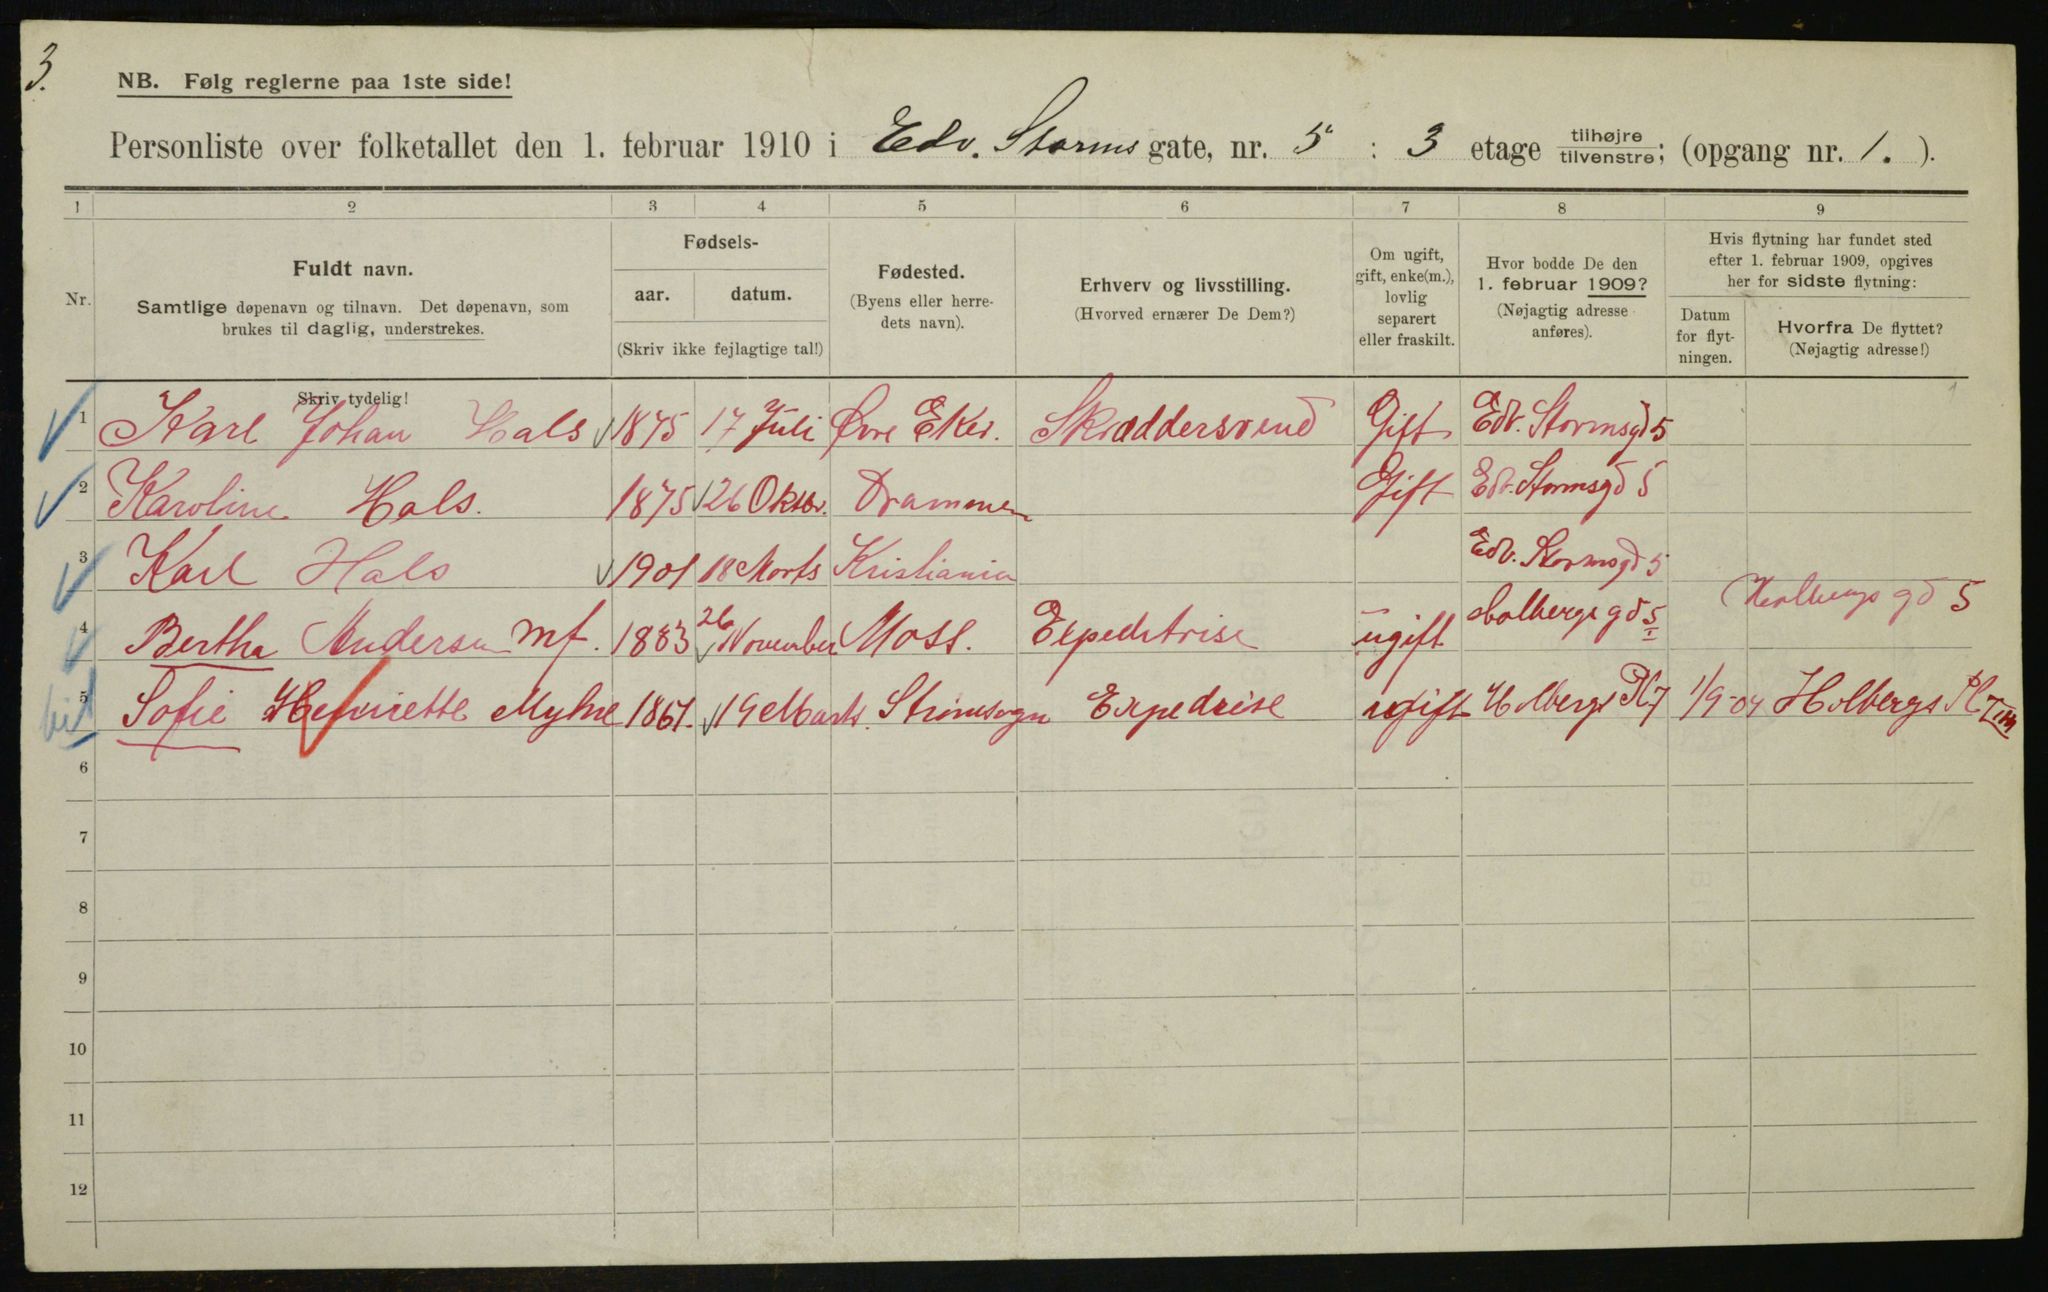 3.
NB. Følg reglerne paa 1ste side!
Personliste over folketallet den 1. februar 1910 i Edv. Storms gate, nr. 5 : 3 etage tilhøjre/tilvenstre; (opgang nr. 1. ).
1 2 3 4 5 6 7 8 9
Nr.
Fuldt navn.
Samtlige døpenavn og tilnavn. Det døpenavn, som
brukes til daglig, understrekes.
Skriv tydelig!
Fødsels-
aar. datum.
(Skriv ikke fejlagtige tal!)
Fødested.
(Byens eller herre-
dets navn).
Erhverv og livsstilling.
(Hvorved ernærer De Dem?)
Om ugift,
gift, enke(m.),
lovlig
separert
eller fraskilt.
Hvor bodde De den
1. februar 1909?
(Nøjagtig adresse
anføres).
Hvis flytning har fundet sted
efter 1. februar 1909, opgives
her for sidste flytning:
Datum
for flyt-
ningen.
Hvorfra De flyttet?
(Nøjagtig adresse!)
1 Karl Johan Hals 1875 17 Juli Øvre Eker. Skræddersvend Gift Edv. Stormsgd 5
2 Karoline Hals. 1875 26 Oktbr. Drammen Gift Edv. Stormsgd 5
3 Karl Hals 1901 18 Marts Kristiania Edv. Stormsgd 5
4 Bertha Andersen mf. 1883 26 November Moss. Expeditrise ugift Holbergs gd 5 I Holbergs gd 5
5 Sofie Henriette Myhre 1867. 19 Marts. Strømsogn Expedrise ugift Holbergs Pl 7 1/9-04 Holbergs Pl 7 III
6
7
8
9
10
11
12